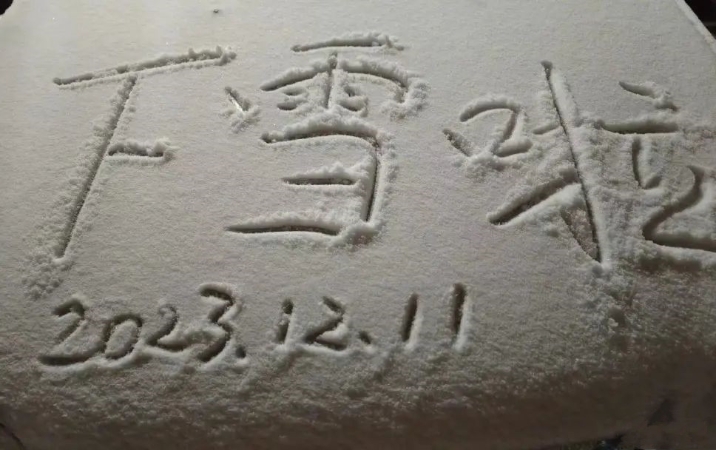 下雪啦
2023.12.11